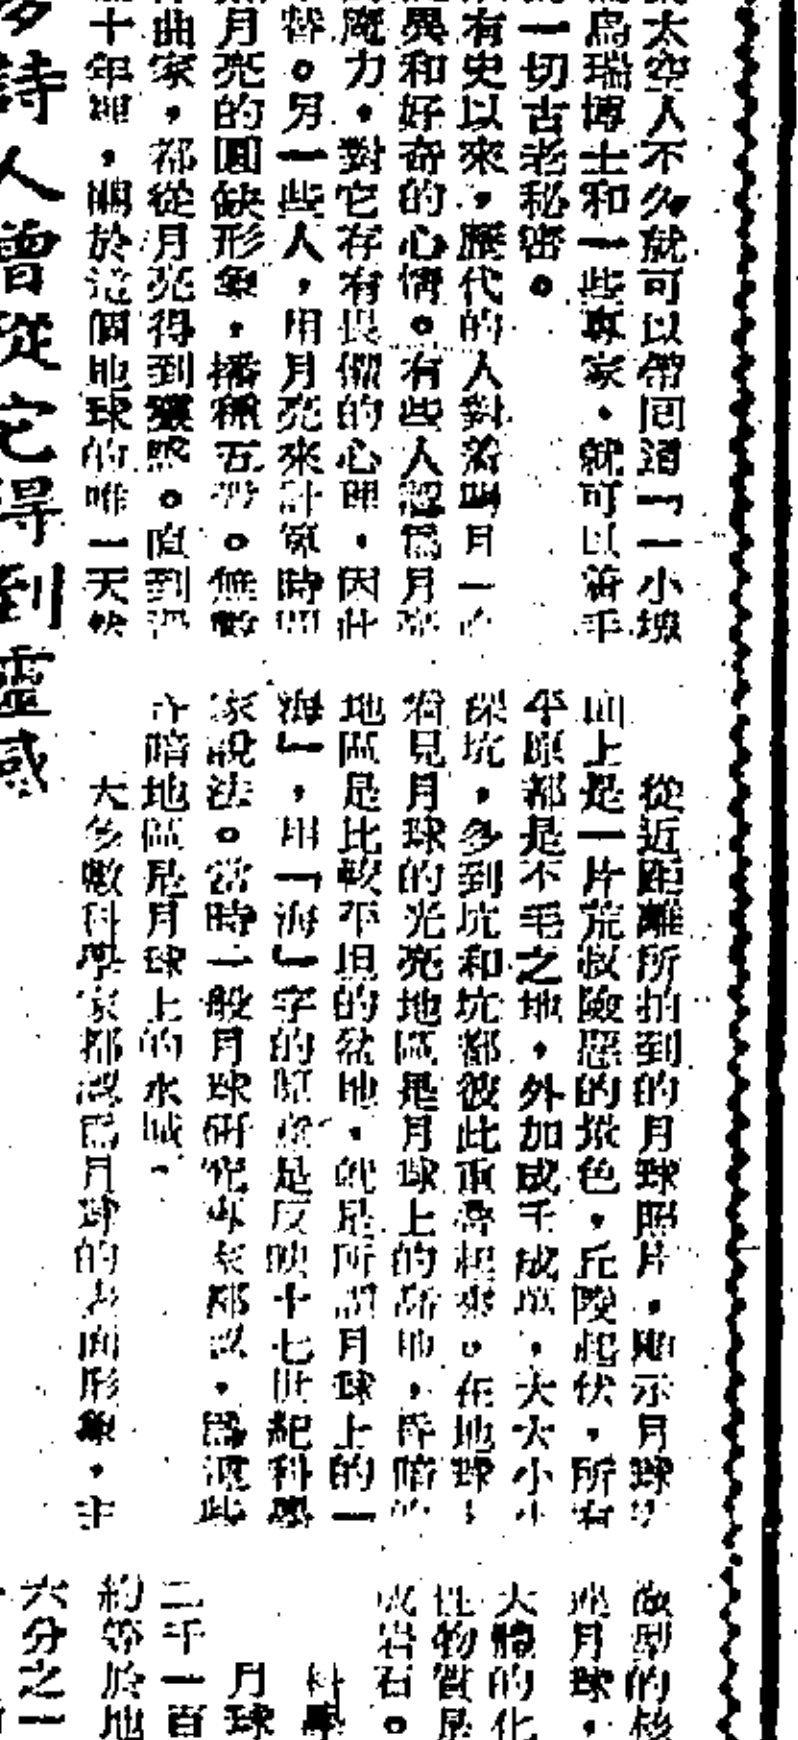 太空人不久就可以帶回這「一小塊
烏瑞博士和一些專家,就可以着手
一切古老秘密。
有史以來,歷代的人對着明月一
異和好奇的心情。有些人認為月亮
魔力,對它存有畏懼的心理,因此
替。另一些人,用月亮來計算時間
月亮的圓缺形象,播種五穀。無數
曲家,都從月亮得到靈感。直到
十年裡,關於這個地球的唯一天然
詩人曾從它得到靈感
從近距離所拍到的月球照片,顯示月球
面上是一片荒寂險惡的景色,丘陵起伏,所有
平原都是不毛之地,外加成千成萬,大大小小
深坑,多到坑和坑都彼此重疊起來。在地球上
看見月球的光亮地區是月球上的高地,昏暗的
地區是比較平坦的盆地,就是所謂月球上的「
海」,用「海」字的原意是反映十七世紀科學
家說法。當時一般月球研究專家都以,為這些
昏暗地區是月球上的水域。
大多數科學家都認為月球的表面形象,主
型的核
月球,
大體的化
性物質是
成岩石。
科學
月球
二千一百
約等於地
六分之一